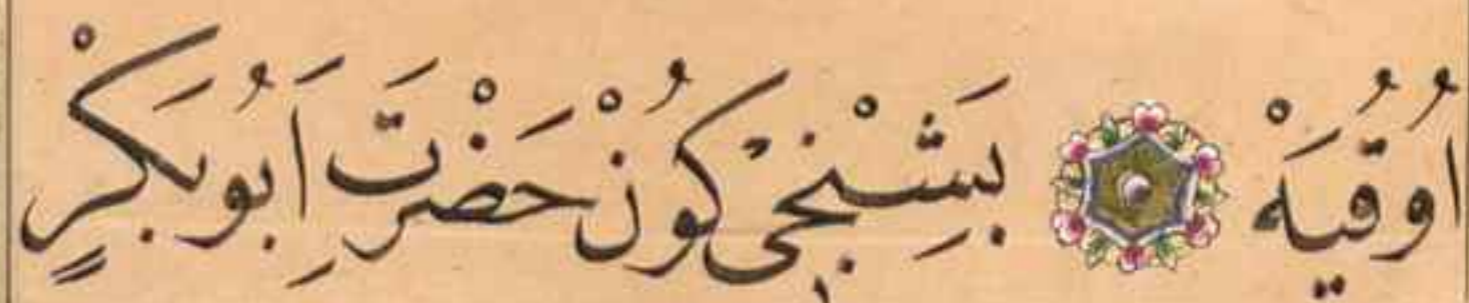 اُوقُيَهْ بَشِنْجِیْ كُونْ حَضْرَتِ اَبُو بَكْرٍ